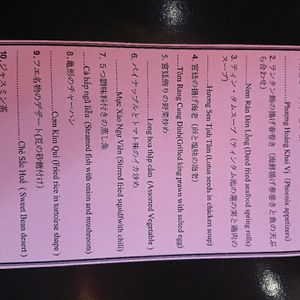 Phượng Hoàng Khai Vị (Phoenix appetizers)
2. ランタン飾の揚げ春巻き (海鮮揚げ春巻きと魚の天ぷら合わせ)
Nem Rán Đèn Lồng (Deed fried seafood spring rolls)
3. ティン・タムスープ (ティンタム池の蓮の実と鶏肉のスープ)
Hương Sen Tịnh Tâm (Lotus seeds in chicken soup)
4. 宮廷の揚げ海老 (卵と塩味の海老)
Tôm Rang Cung Đình(Grilled king prawn with salted egg)
5. 宮廷飾りの野菜炒め
Long hoa thập cẩm (Assorted Vegetable)
6. パイナップルとトマト味のイカ炒め
Mực Xào Ngự Viên (Stirred fried squidfwith chili)
7. 5つ調味料付きの蒸し魚
Cá hấp ngũ liễu (Steamed fish with onion and mushroom)
8. 亀形のチャーハン
Cơm Kim Qui (Fried rice in tortoise shape)
9. フエ名物のデザート(豆の砂糖付け)
Chè Sắc Huế (Sweet Bean desert)
10. ジャスミン茶